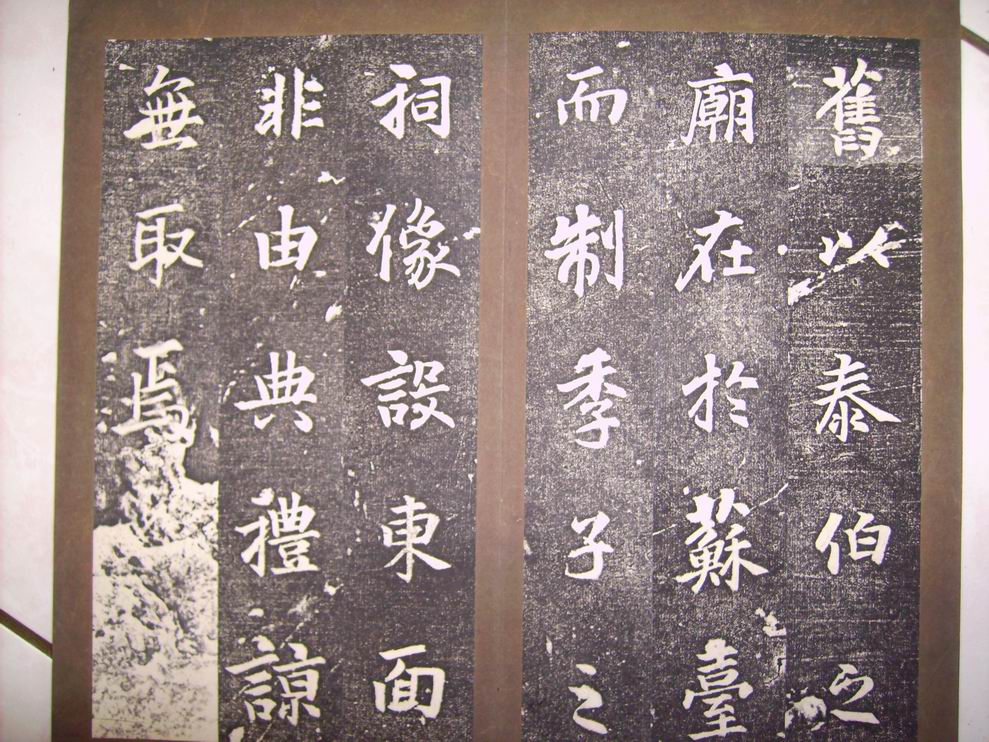 舊以泰伯之
廟在於蘇臺
而制季子之
祠像設東面
非由典禮諒
無取焉